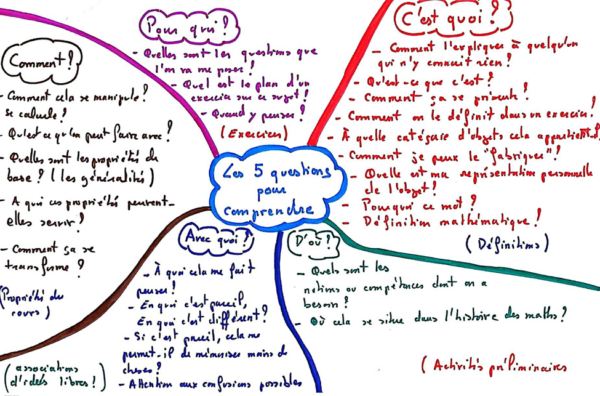 Les 5 questions
pour
comprendre
C'est quoi ?
- Comment l'expliquer à quelqu'un
qui n'y connait rien ?
- Qu'est-ce que c'est ?
- Comment ça se présente ?
- Comment on le définit dans un exercice ?
- À quelle catégorie d'objets cela appartient-il ?
- Comment je peux le "fabriquer" ?
- Quelle est ma représentation personnelle
de l'objet ?
- Pourquoi ce mot ?
- Définition mathématique ?
(Définitions)
D'où ?
- Quels sont les
notions ou compétences dont on a
besoin ?
- Où cela se situe dans l'histoire des maths ?
(Activités préliminaires
Avec quoi ?
- À quoi cela me fait
penser ?
- En quoi c'est pareil,
En quoi c'est différent ?
- Si c'est pareil, cela me
permet-il de mémoriser moins de
choses ?
- Attention aux confusions possibles
(associations
d'idées libres !)
Comment ?
- Comment cela se manipule ?
se calcule ?
- Qu'est ce qu'on peut faire avec ?
- Quelles sont les propriétés de
base ? (les généralités)
- A qui ces propriétés peuvent-
elles servir ?
- Comment ça se
transforme ?
(Propriétés du
cours)
Pour qui ?
- Quelles sont les questions que
l'on va me poser ?
- Quel est le plan d'un
exercice sur ce sujet ?
- Quand y penser ?
(Exercices)